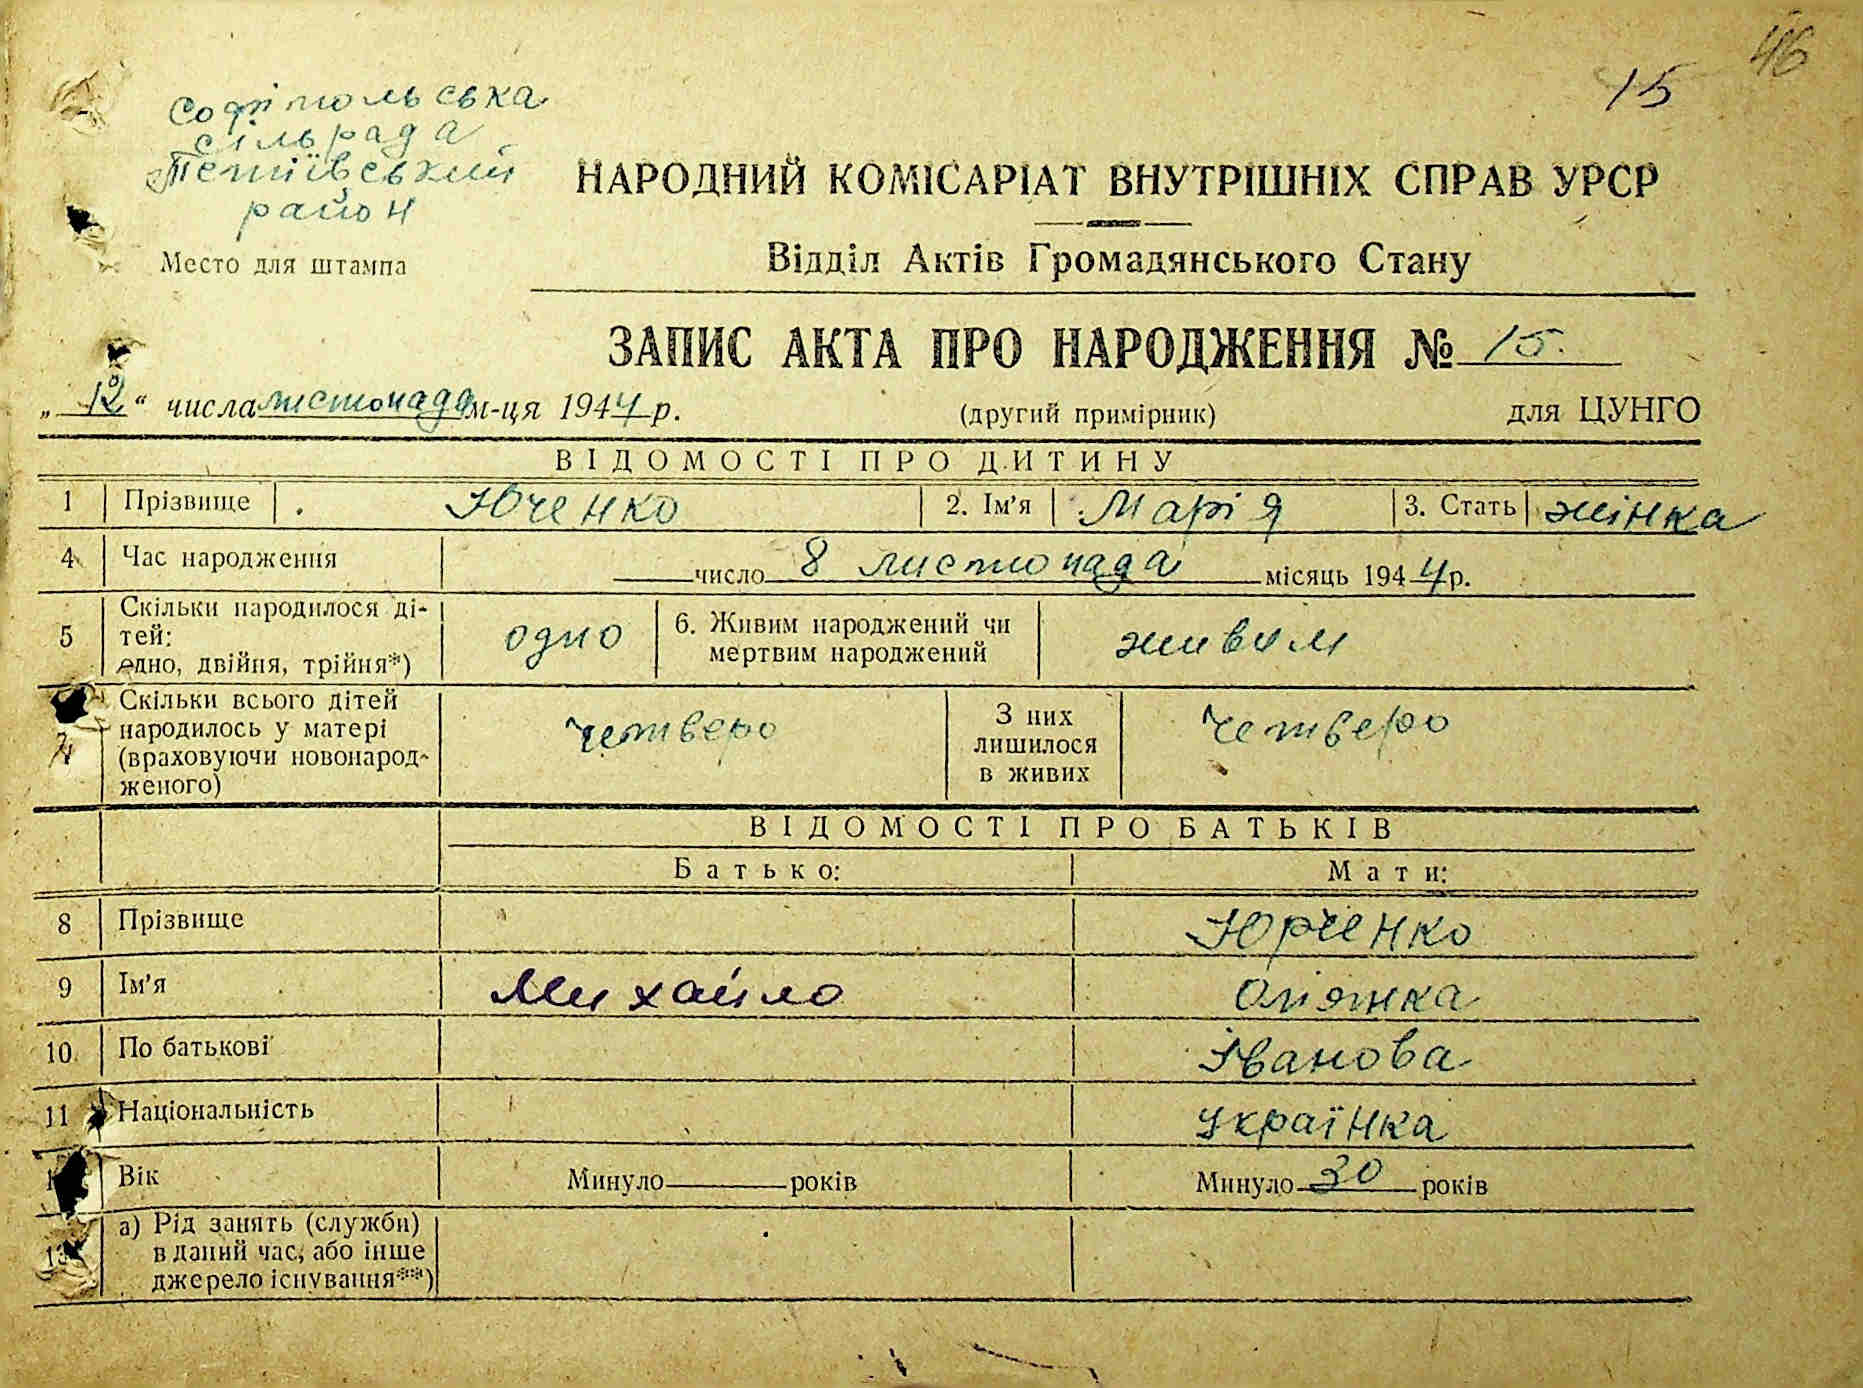 46
15
Софіпольська
сільрада
Тетіївський
район
Место для штампа
НАРОДНИЙ КОМІСАРІАТ ВНУТРІШНІХ СПРАВ УРСР
Відділ Актів Громадянського Стану
ЗАПИС АКТА ПРО НАРОДЖЕННЯ № 15.
„ 12 “ числа листопада м-ця 1944 р. (другий примірник) для ЦУНГО
ВІДОМОСТІ ПРО ДИТИНУ
1 Прізвище Юченко 2. Ім'я Марія 3. Стать жінка
4 Час народження число 8 листопада місяць 1944 р.
5 Скільки народилося ді-
тей:
одно, двійня, трійня*) одно 6. Живим народжений чи
мертвим народжений живим
7 Скільки всього дітей
народилось у матері
(враховуючи новонарод-
женого) четверо З них
лишилося
в живих четверо
ВІДОМОСТІ ПРО БАТЬКІВ
Батько: Мати:
8 Прізвище Юрченко
9 Ім'я Михайло
10 По батькові Іванова
11 Національність українка
Вік Минуло років Минуло 30 років
13 а) Рід занять (служби)
в даний час, або інше
джерело існування**)